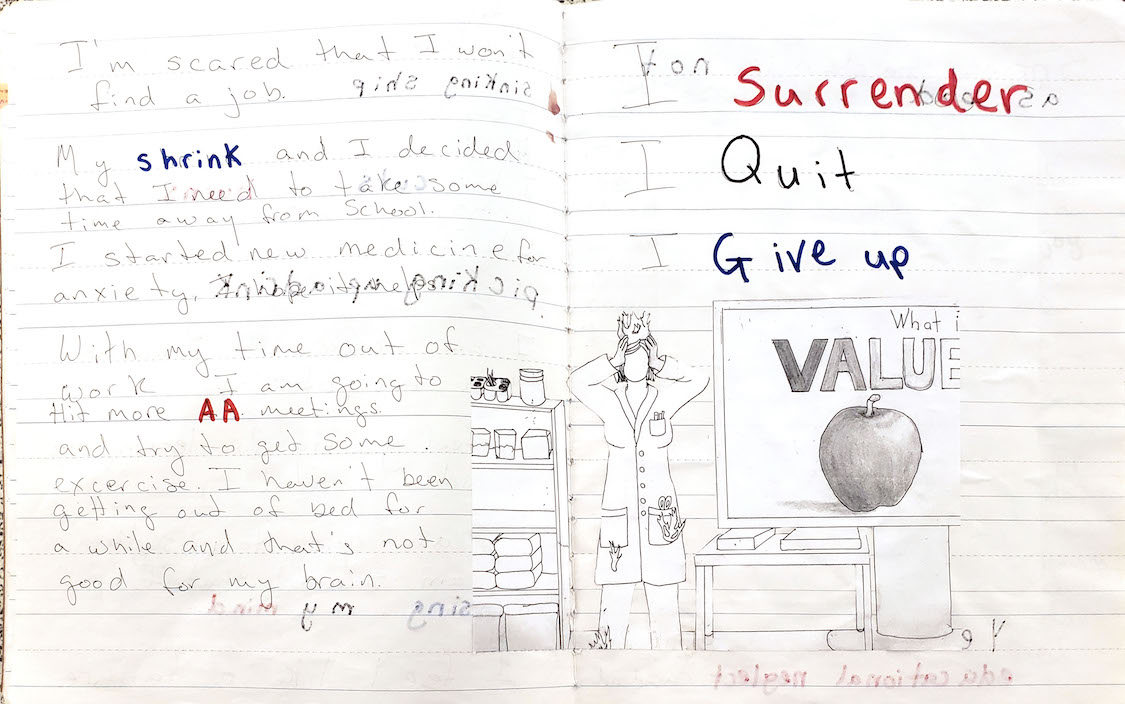 I'm scared that I won't
find a job.
My shrink and I decided
that I need to take some
time away from School.
I started new medicine for
anxiety.
With my time out of
work I am going to
Hit more AA meetings.
and try to get some.
excercise. I haven't been
getting out of bed for
a while and that's not
good for my brain.
I Surrender
I Quit
I Give up
What i
VALUE
sinking ship
not
picking
sing my mind
educational neglect